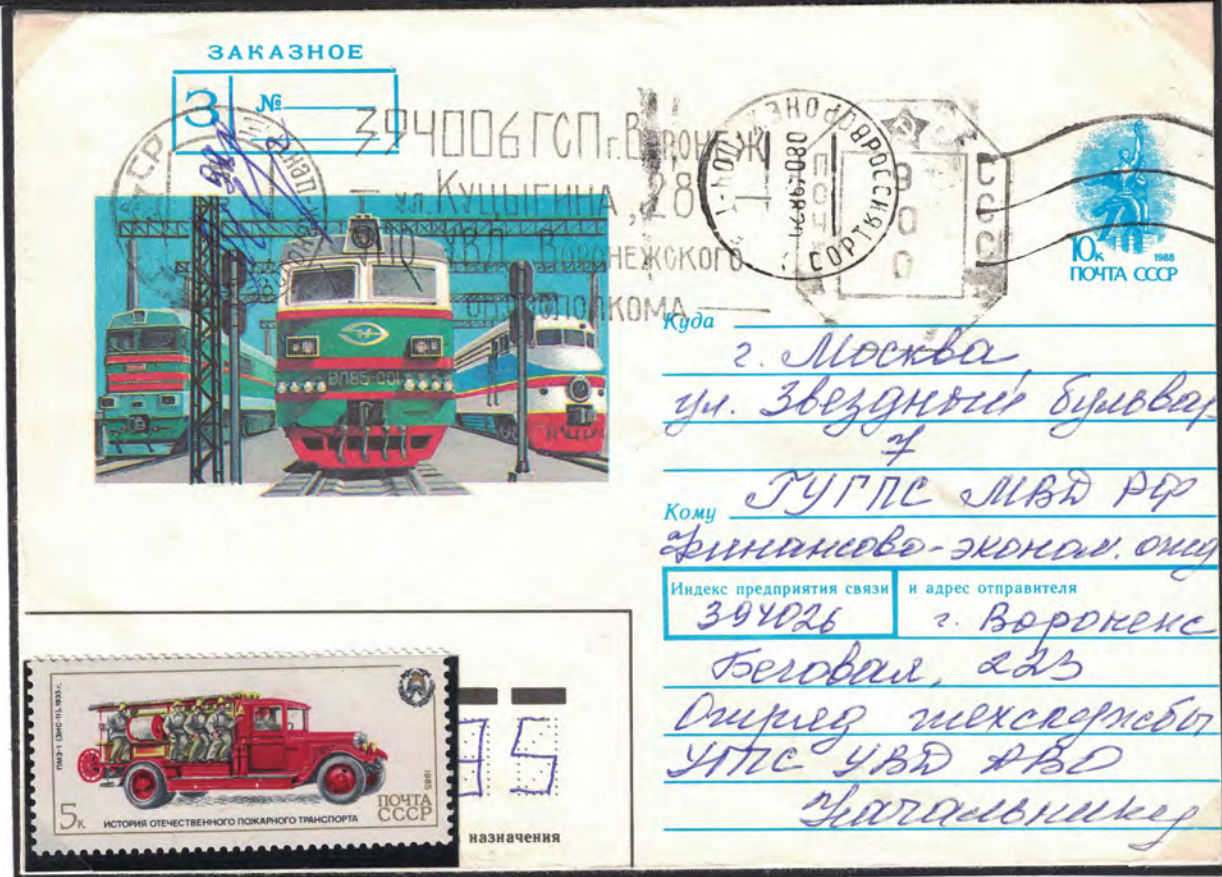 ЗАКАЗНОЕ
З №
394006 ГСП г. Воронеж
ул. Куцыгина, 28
УВД Воронежского
облисполкома
ВОРОНЕЖ
РОССИЯ
ПОЧТА
СССР
900
10к 1988
ПОЧТА СССР
ВЛ85-001
Куда
г. Москва
ул. Звездный бульвар
7
Кому ГУГПС МВД РФ
Финансово-эконом. отд
Индекс предприятия связи и адрес отправителя
394026 г. Воронеж
Беговая, 223
Отряд техслужбы
УГПС УВД АВО
Начальнику
ПМЗ-1 (ЗИС-11), 1933 г.
1985
5к
ИСТОРИЯ ОТЕЧЕСТВЕННОГО ПОЖАРНОГО ТРАНСПОРТА
ПОЧТА
СССР
5
назначения